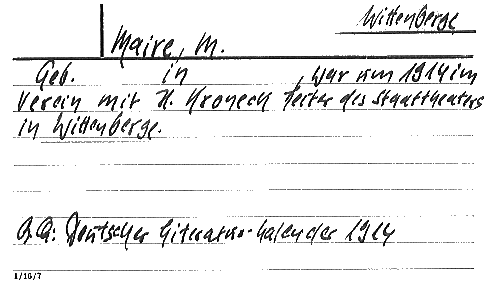 Wittenberge
Maire, M.
Geb. in , war um 1914 im
Verein mit H. Kroneck Leiter des Stadttheaters
in Wittenberge.
Q.Q.: Deutscher Literatur-Kalender 1914
1/16/7